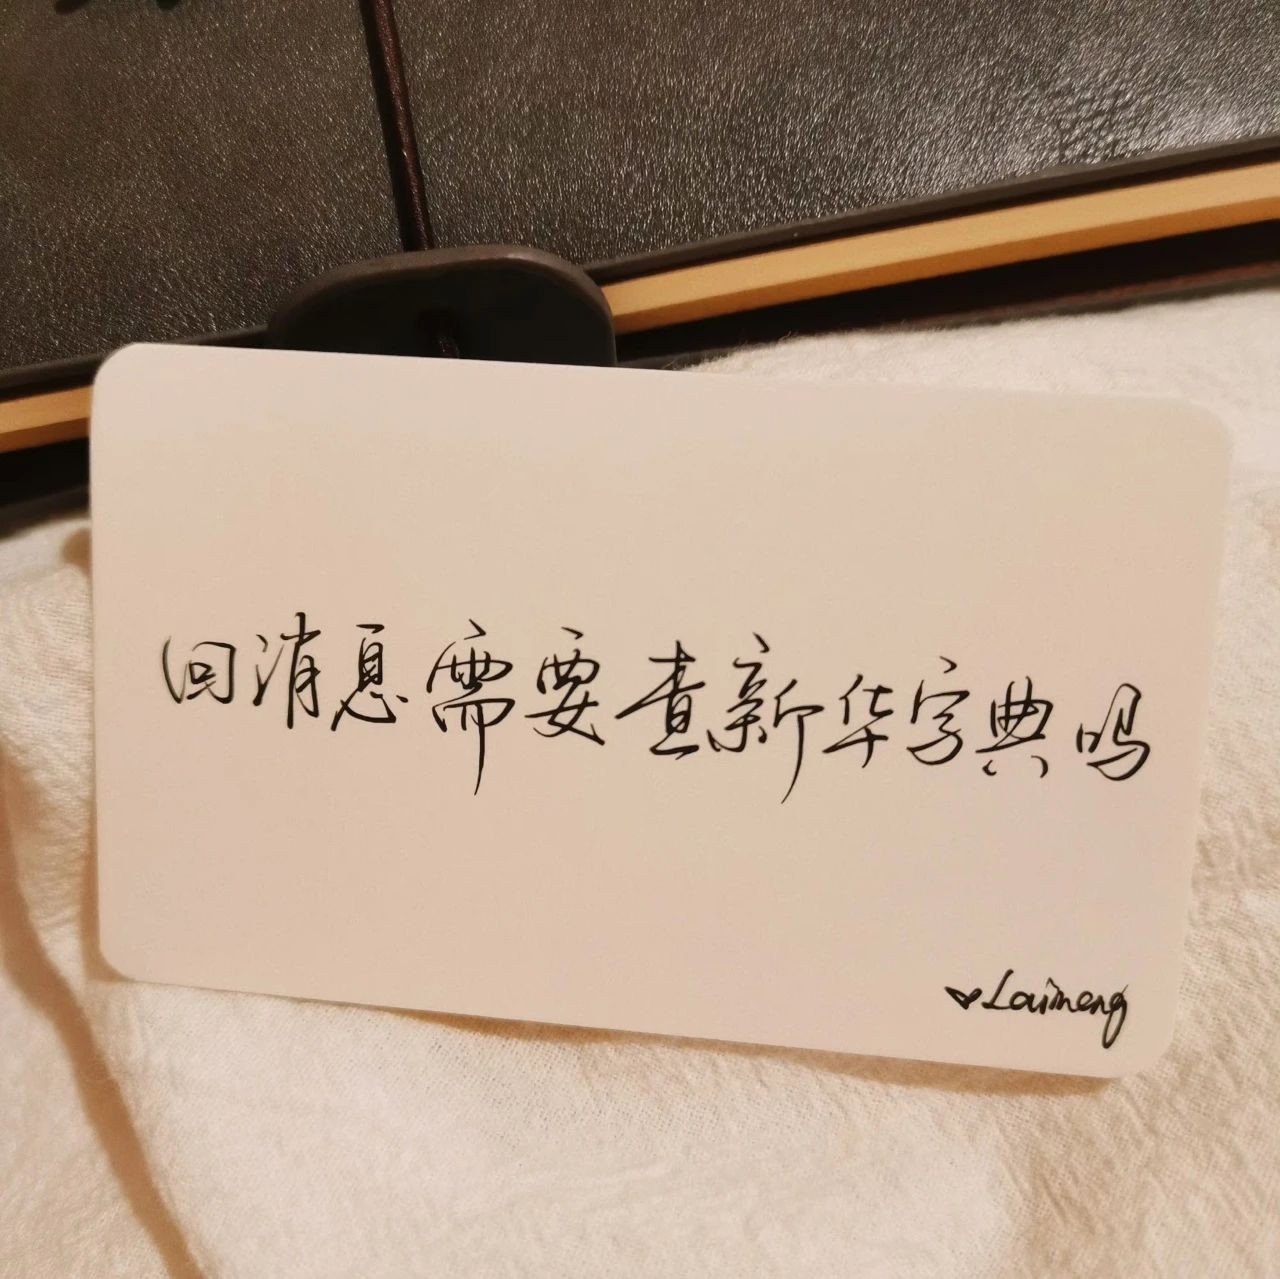 回消息需要查新华字典吗
♥Laimeng